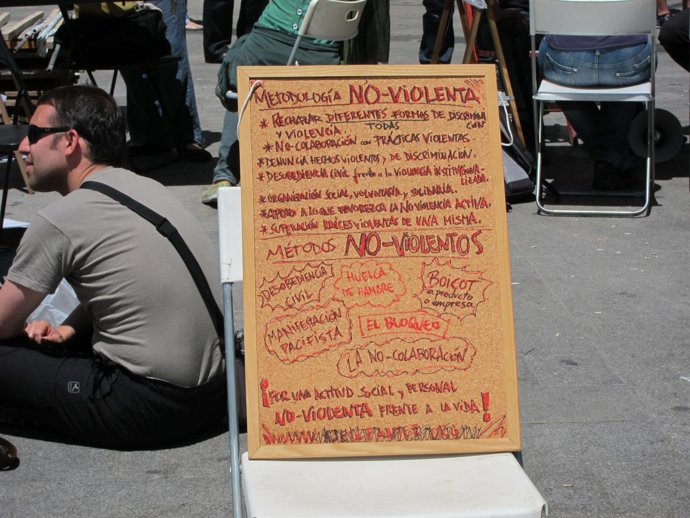 METODOLOGÍA NO-VIOLENTA
* RECHAZAR DIFERENTES FORMAS DE DISCRIMINA
Y VIOLENCIA. TODAS CIÓN
* NO-COLABORACIÓN CON PRÁCTICAS VIOLENTAS.
* DENUNCIA HECHOS VIOLENTOS Y DE DISCRIMINACIÓN.
* DESOBEDIENCIA CIVIL frente a la VIOLENCIA INSTITUCIONA
LIZADA.
* ORGANIZACIÓN SOCIAL, VOLUNTARIA, SOLIDARIA.
* APOYO A LO QUE FAVOREZCA LA NO VIOLENCIA ACTIVA.
* SUPERACIÓN RAÍCES VIOLENTAS DE UNA MISMA.
MÉTODOS NO-VIOLENTOS
DESOBEDIENCIA
CIVIL
HUELGA
DE HAMBRE
BOICOT
a producto
o empresa
MANIFESTACIÓN
PACIFISTA
EL BLOQUEO
LA NO-COLABORACIÓN
¡POR UNA ACTITUD SOCIAL Y PERSONAL
NO-VIOLENTA FRENTE A LA VIDA!